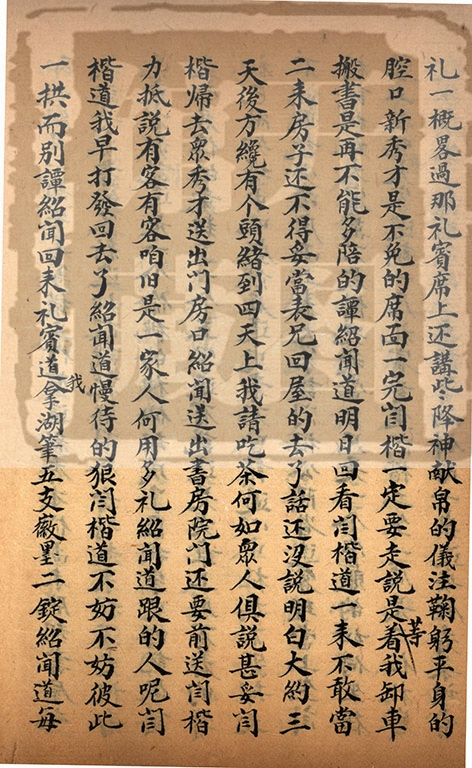 礼一概畧過那礼賓席上还講些降神献帛的儀法鞠躬平身的
腔口新秀才是不免的席面一完闫楷一定要走說是看等我卸車
搬書是再不能多陪的譚紹聞道明日回看闫楷道一来不敢當
二来房子还不得妥當表兄回屋的去了話还没説明白大約三
天後方纔有个頭緒到四天上我請吃茶何如衆人俱說甚妥闫
楷帰去衆秀才送出門房口紹聞送出書房院門还要前送闫楷
力抵說有客有客咱旧是一家人何用多礼紹聞道跟的人呢闫
楷道我早打發回去了紹聞道慢待的狠闫楷道不妨不妨彼此
一拱而别譚紹聞回来礼賓道拿我湖筆五支徽墨二錠紹聞道每